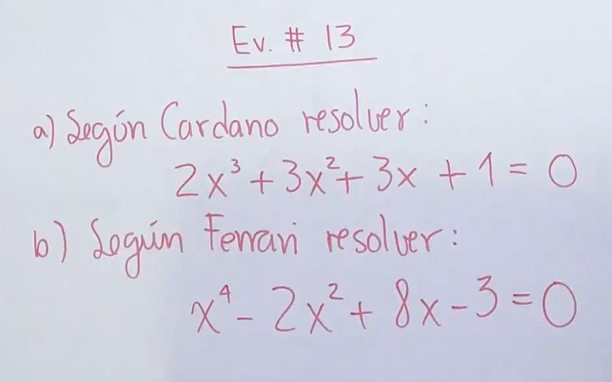 Ev. # 13
a) Según Cardano resolver:
2x³ + 3x² + 3x + 1 = 0
b) Según Ferrari resolver:
x⁴ - 2x² + 8x - 3 = 0